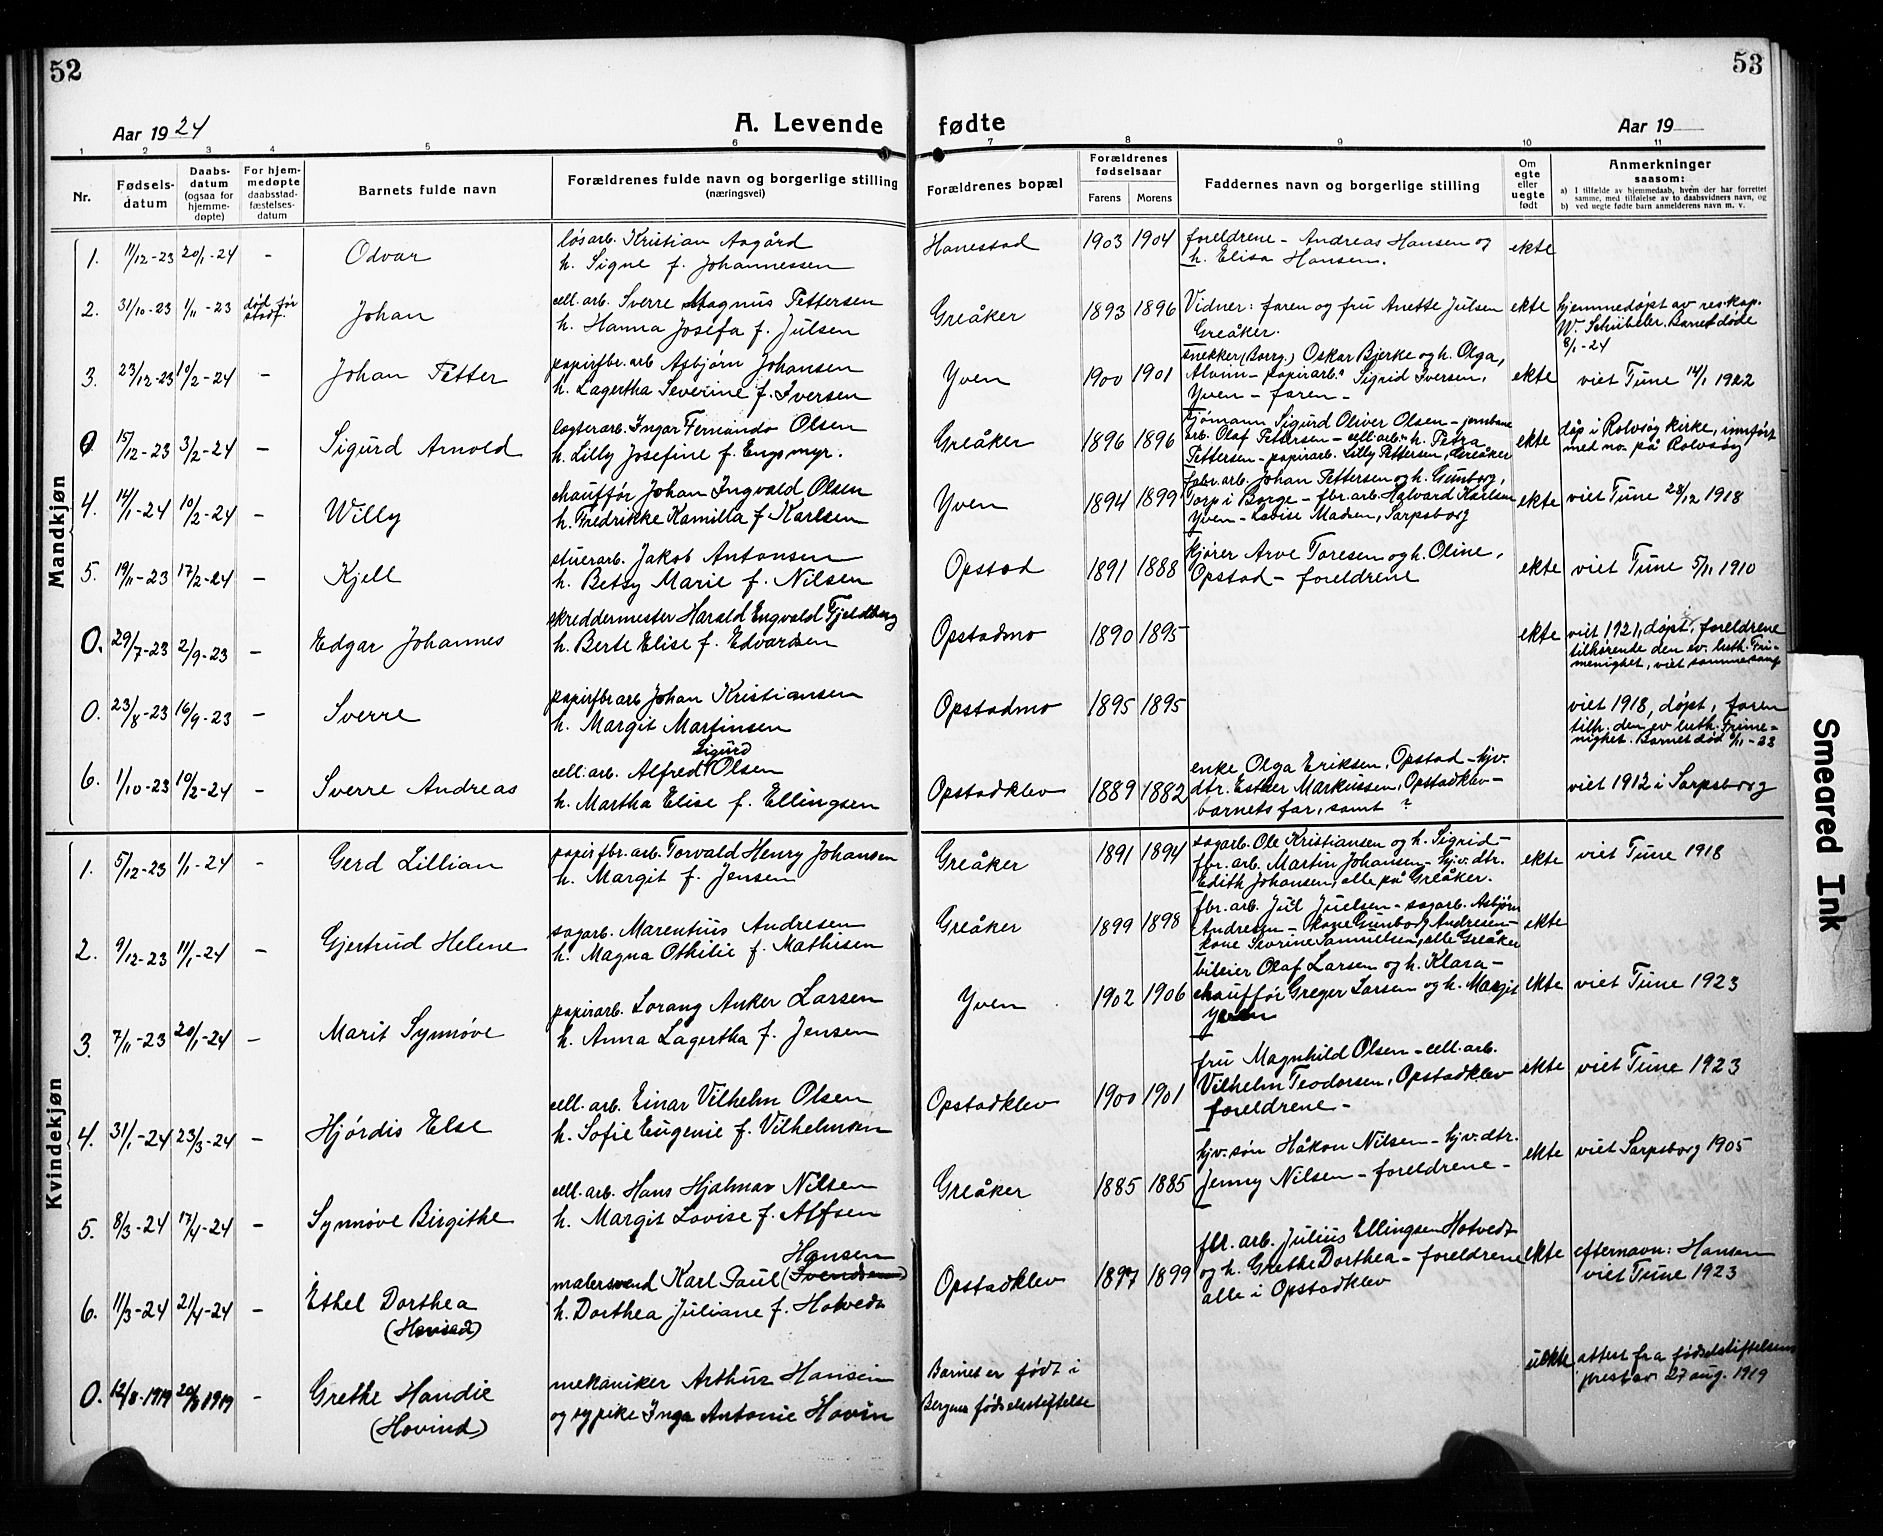 52
53
Aar 1924
A. Levende fødte
Aar 19
1 2 3 4 5 6 7 8 9 10 11
Nr.
Fødsels-
datum
Daabs-
datum
(ogsaa for
hjemme-
døpte)
For hjem-
medøpte
daabsstad-
fæstelses-
datum
Barnets fulde navn
Forældrenes fulde navn og borgerlige stilling
(næringsvei)
Forældrenes bopæl
Forældrenes
fødselsaar
Farens Morens
Faddernes navn og borgerlige stilling
Om
egte
eller
uegte
født
Anmerkninger
saasom:
a) I tilfælde av hjemmedaab, hvem der har forrettet
samme, med tilføielse av to daabsvidners navn, og
b) ved uegte fødte barn anmelderens navn m. v.
Mandkjøn
1. 11/12-23 20/1-24 - Odvar
løsarb. Kristian Aagård
h. Signe f. Johannessen
Hanestad 1903 1904
foreldrene - Andreas Hansen og
h. Elisa Hansen.
ekte
2. 31/10-23 1/11-23 død før
stadf.
Johan
cell. arb. Sverre Magnus Pettersen
h. Hanna Josefa f. Julsen
Greåker 1893 1896
Vidner: faren og fru Anette Julsen
Greåker.
ekte
hjemmedøpt av res. kap.
W. Schübeler. Barnet døde
8/1-24
3. 23/12-23 10/2-24 - Johan Petter
papirfbr. arb. Asbjørn Johansen
h. Lagertha Severine f. Iversen
Yven 1900 1901
snekker (Borg.) Oskar Bjerke og h. Olga,
Alvim - papirarb. Sigrid Iversen,
Yven - faren -
ekte viet Tune 14/1 1922
0. 15/12-23 3/2-24 - Sigurd Arnold
lægterarb. Ingar Fernando Olsen
h. Lilly Josefine f. Engsmyr.
Greåker 1896 1896
sjømann Sigurd Oliver Olsen - jernbane
arb. Olaf Pettersen - cell. arb. h. Petra
Pettersen - papirarb. Lilly Pettersen, Greåker
ekte
døp i Rolvsøy kirke, innført
med no. på Rolvsøy
4. 14/1-24 10/2-24 - Willy
chauffør Johan Ingvald Olsen
h. Fredrikke Kamilla f. Karlsen
Yven 1894 1899
fabr. arb. Johan Pettersen og h. Gunborg,
Torp i Borge - fbr. arb. Halvard Karlsen
Yven - Lovise Madsen, Sarpsborg
ekte viet Tune 28/12 1918
5. 19/11-23 17/2-24 - Kjell
stuerarb. Jakob Antonsen
h. Betsy Marie f. Nilsen
Opstad 1891 1888
kjører Arve Toresen og h. Oline,
Opstad - foreldrene
ekte viet Tune 5/11 1910
0. 29/7-23 2/9-23 - Edgar Johannes
skreddermester Harald Engvald Fjeldberg
h. Berte Elise f. Edvardsen
Opstadmo 1890 1895
ekte
viet 1921, døpt, foreldrene
tilhørende den ev. luth. Fri-
menighet, viet sammesang
0. 23/8-23 16/9-23 - Sverre
papirfbr arb Johan Kristiansen
h. Margit Martinsen
Opstadmo 1895 1895
viet 1918, døpt, faren
tilh. den ev luth. Frime-
nighet. Barnet død
6. 1/10-23 10/2-24 - Sverre Andreas
Sigurd
cell. arb. Alfred Olsen
h. Martha Elise f. Ellingsen
Opstadklev 1889 1882
enke Olga Eriksen, Opstad - hjv.
dtr. Esther Markussen, Opstadklev -
barnets far, samt ?
viet 1912 i Sarpsborg
Kvindekjøn
1. 5/12-23 1/1-24 - Gerd Lillian
papirfbr. arb. Torvald Henry Johansen
h. Margit f. Jensen
Greåker 1891 1894
sagarb. Ole Kristiansen og h. Sigrid -
fbr. arb. Martin Johansen - hjv. dtr.
Edith Johansen, alle på Greåker.
ekte viet Tune 1918
2. 9/12-23 11/1-24 - Gjertrud Helene
sagarb. Marentius Andresen
h. Magna Othilie f. Mathisen
Greåker 1899 1898
fbr. arb. Jul Juelsen - sagarb. Asbjørn
Andresen - kone Gunborg Andresen -
kone Severine Samuelsen, alle Greåker
ekte
3. 7/11-23 20/1-24 - Marit Synnøve
papirarb. Lorang Anker Larsen
h. Anna Lagertha f. Jensen
Yven 1902 1906
bileier Olaf Larsen og h. Klara -
chauffør Greger Larsen og h. Margit
Yven
ekte viet Tune 1923
4. 31/1-24 23/3-24 - Hjørdis Else
cell. arb. Einar Vilhelm Olsen
h. Sofie Eugenie f. Vilhelmsen
Opstadklev 1900 1901
fru Magnhild Olsen - cell. arb.
Vilhelm Teodorsen, Opstadklev
foreldrene -
ekte viet Tune 1923
5. 8/3-24 17/4-24 - Synnøve Birgithe
cell. arb. Hans Hjalmar Nilsen
h. Margit Lovise f. Alfsen
Greåker 1885 1885
hjv. søn Håkon Nilsen - hjv. dtr.
Jenny Nilsen - foreldrene -
ekte viet Sarpsborg 1905
6. 11/3-24 21/4-24 - Ethel Dorthea
Hansen
malersvend Karl Paul (Svendsen)
h. Dorthea Juliane f. Hotvedt
Opstadklev 1897 1899
fbr. arb. Julius Ellingsen Hotvedt
og h. Grethe Dorthea - foreldrene
alle i Opstadklev
ekte
efternavn: Hansen
viet Tune 1923
0. 12/8-1919 20/8 1919 - Grethe Handie
(Hovind)
mekaniker Arthur Hansen
og sypike Inga Antonie Hovin
Barnet er født i
Bergens fødselsstiftelse
uekte
attest fra fødselsstiftelsens
prest av 27 aug. 1919
Smeared Ink